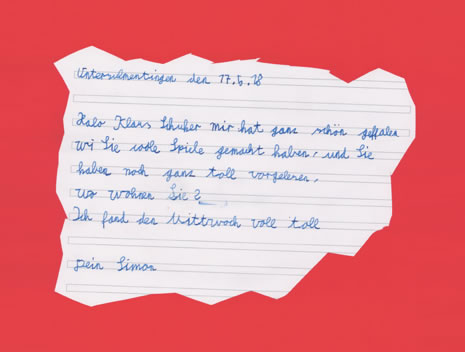 Unterschmentingen den 17.5.18
Halo Klaus Schuker mir hat gans schön geffalen
wi Sie volle Spiele gemacht haben, und Sie
haben noch gans toll vorgelesen.
wo wohnen Sie?
Ich fand den Mittwoch voll toll
Dein Simon